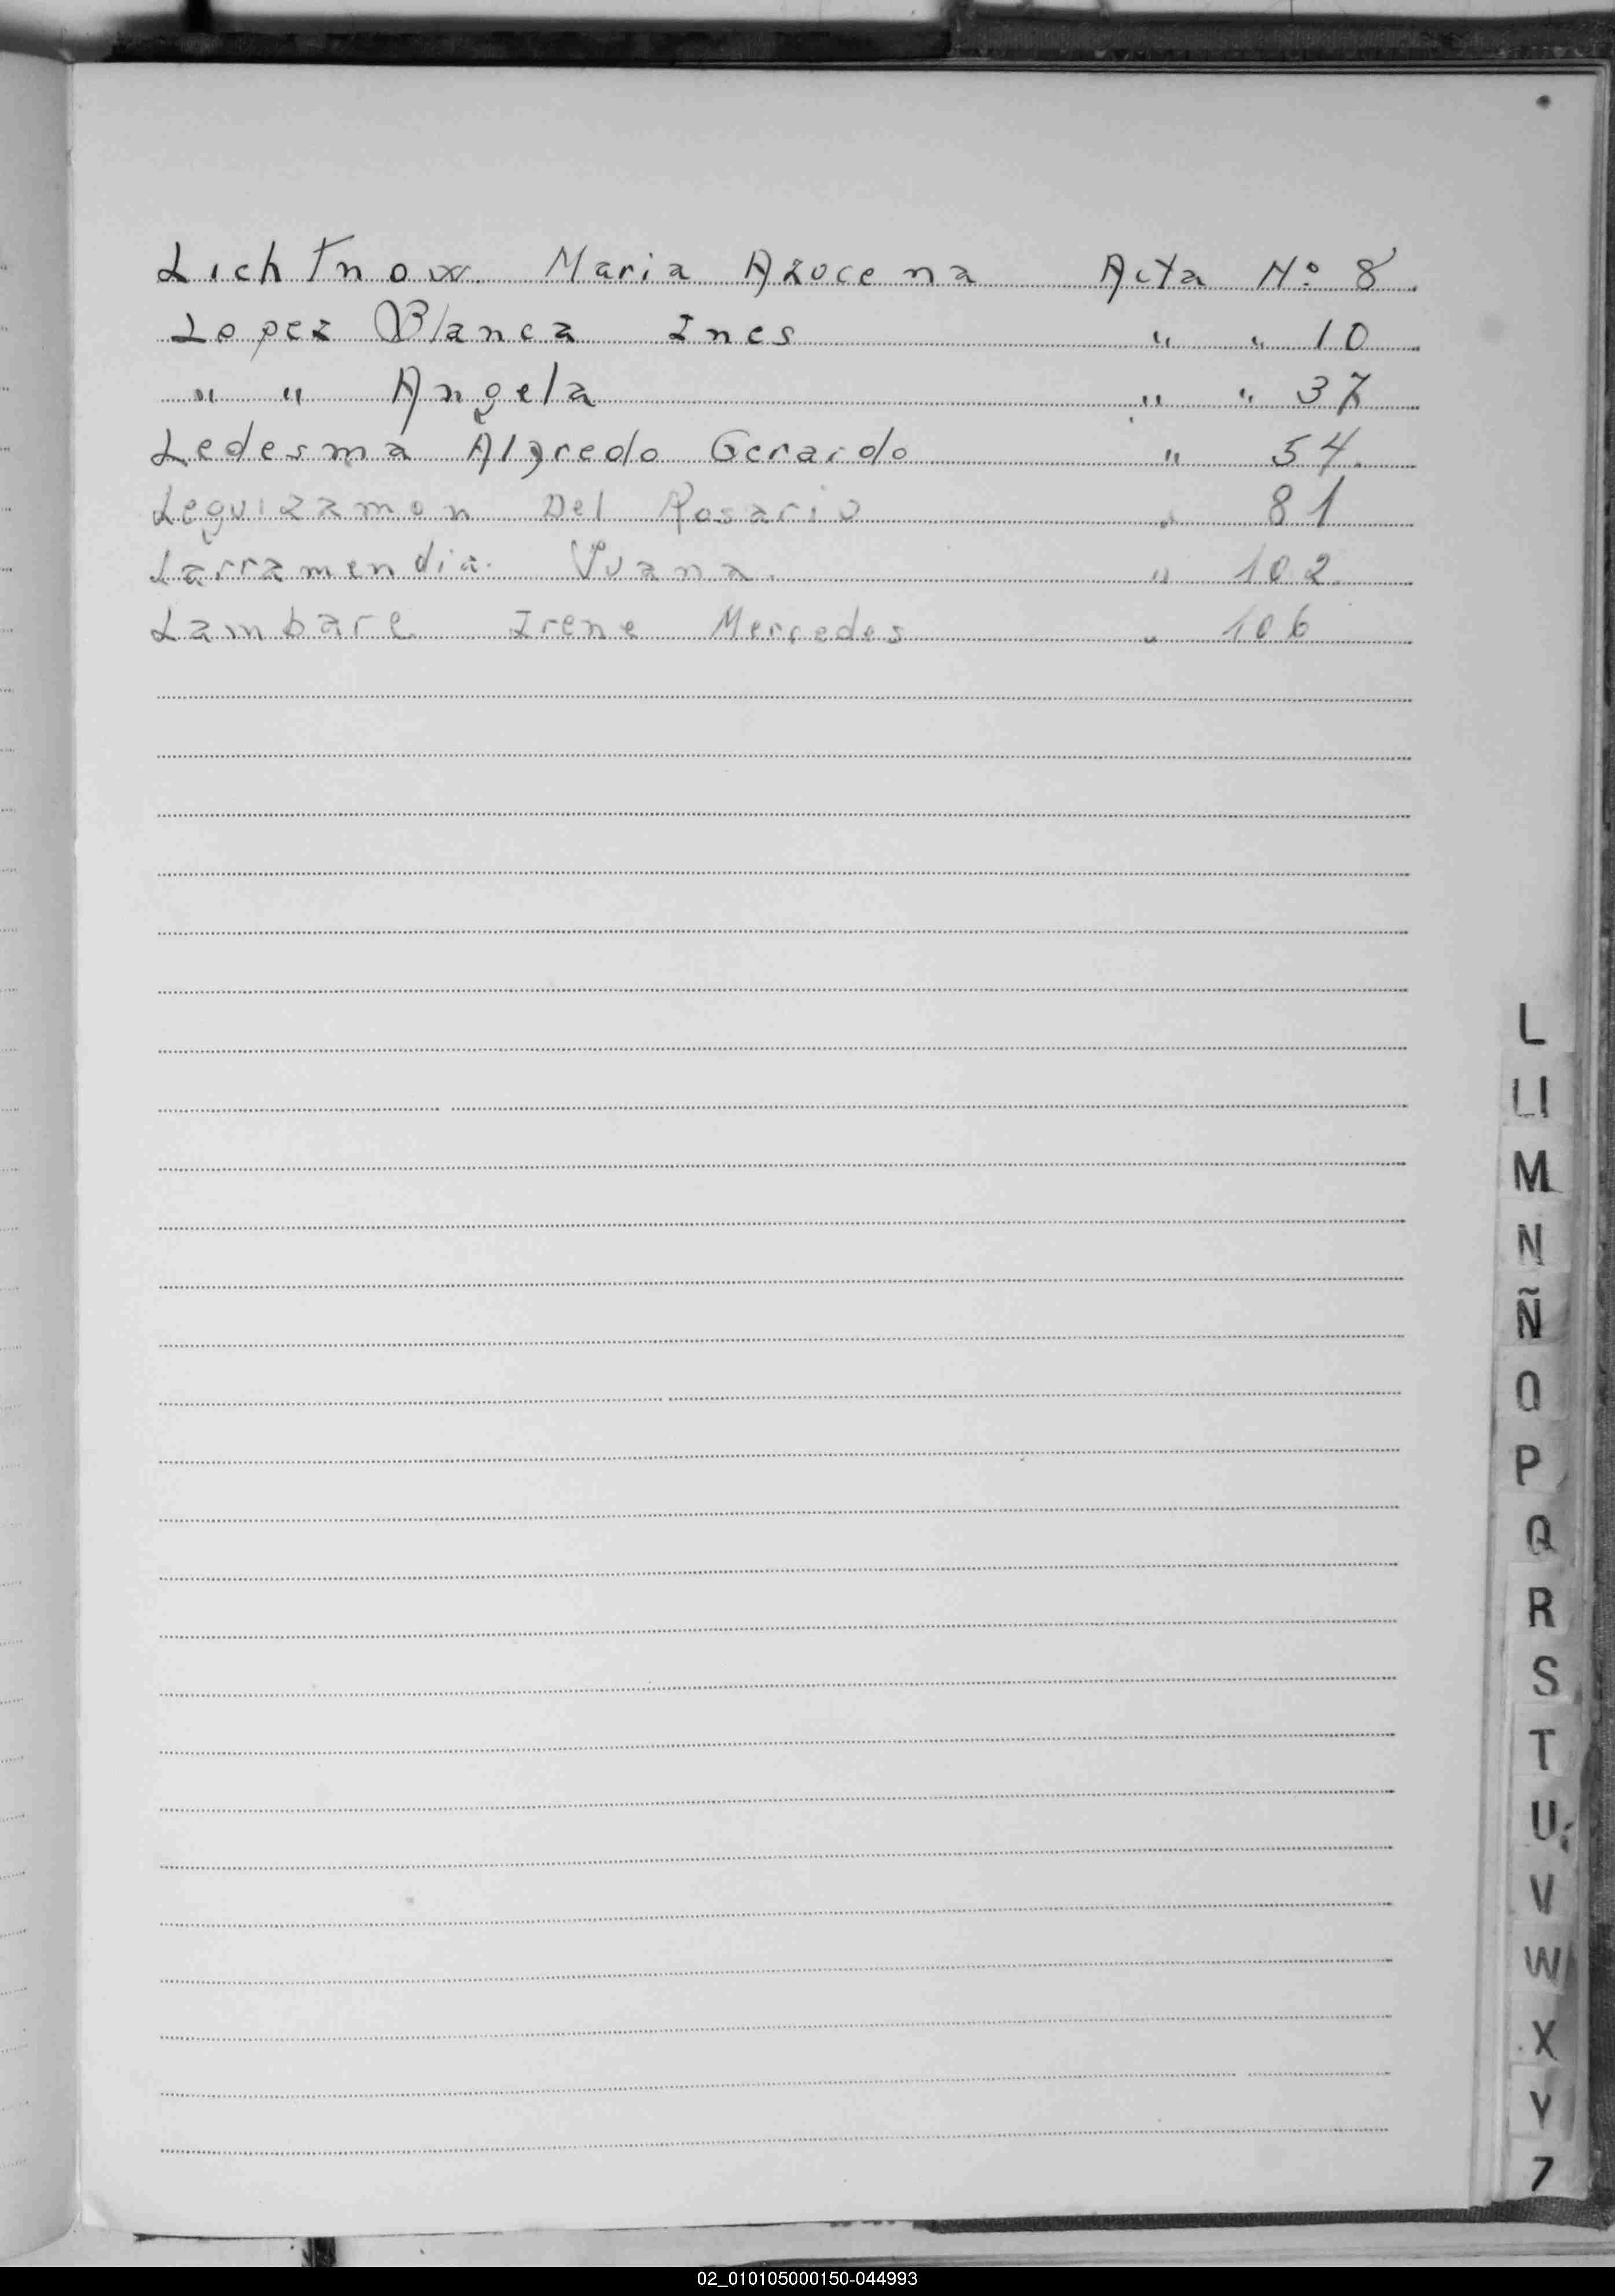 Lichtnow. Maria Azucena Acta Nº 8
Lopez Blanca Ines " " 10
" " Angela " " 37
Ledesma Alfredo Gerardo " 54.
Leguizamon Del Rosario " 81
Larramendia. Juana. " 102.
Lambare Irene Mercedes " 106
L
Ll
M
N
Ñ
O
P
Q
R
S
T
U
V
W
X
Y
Z
02_010105000150-044993